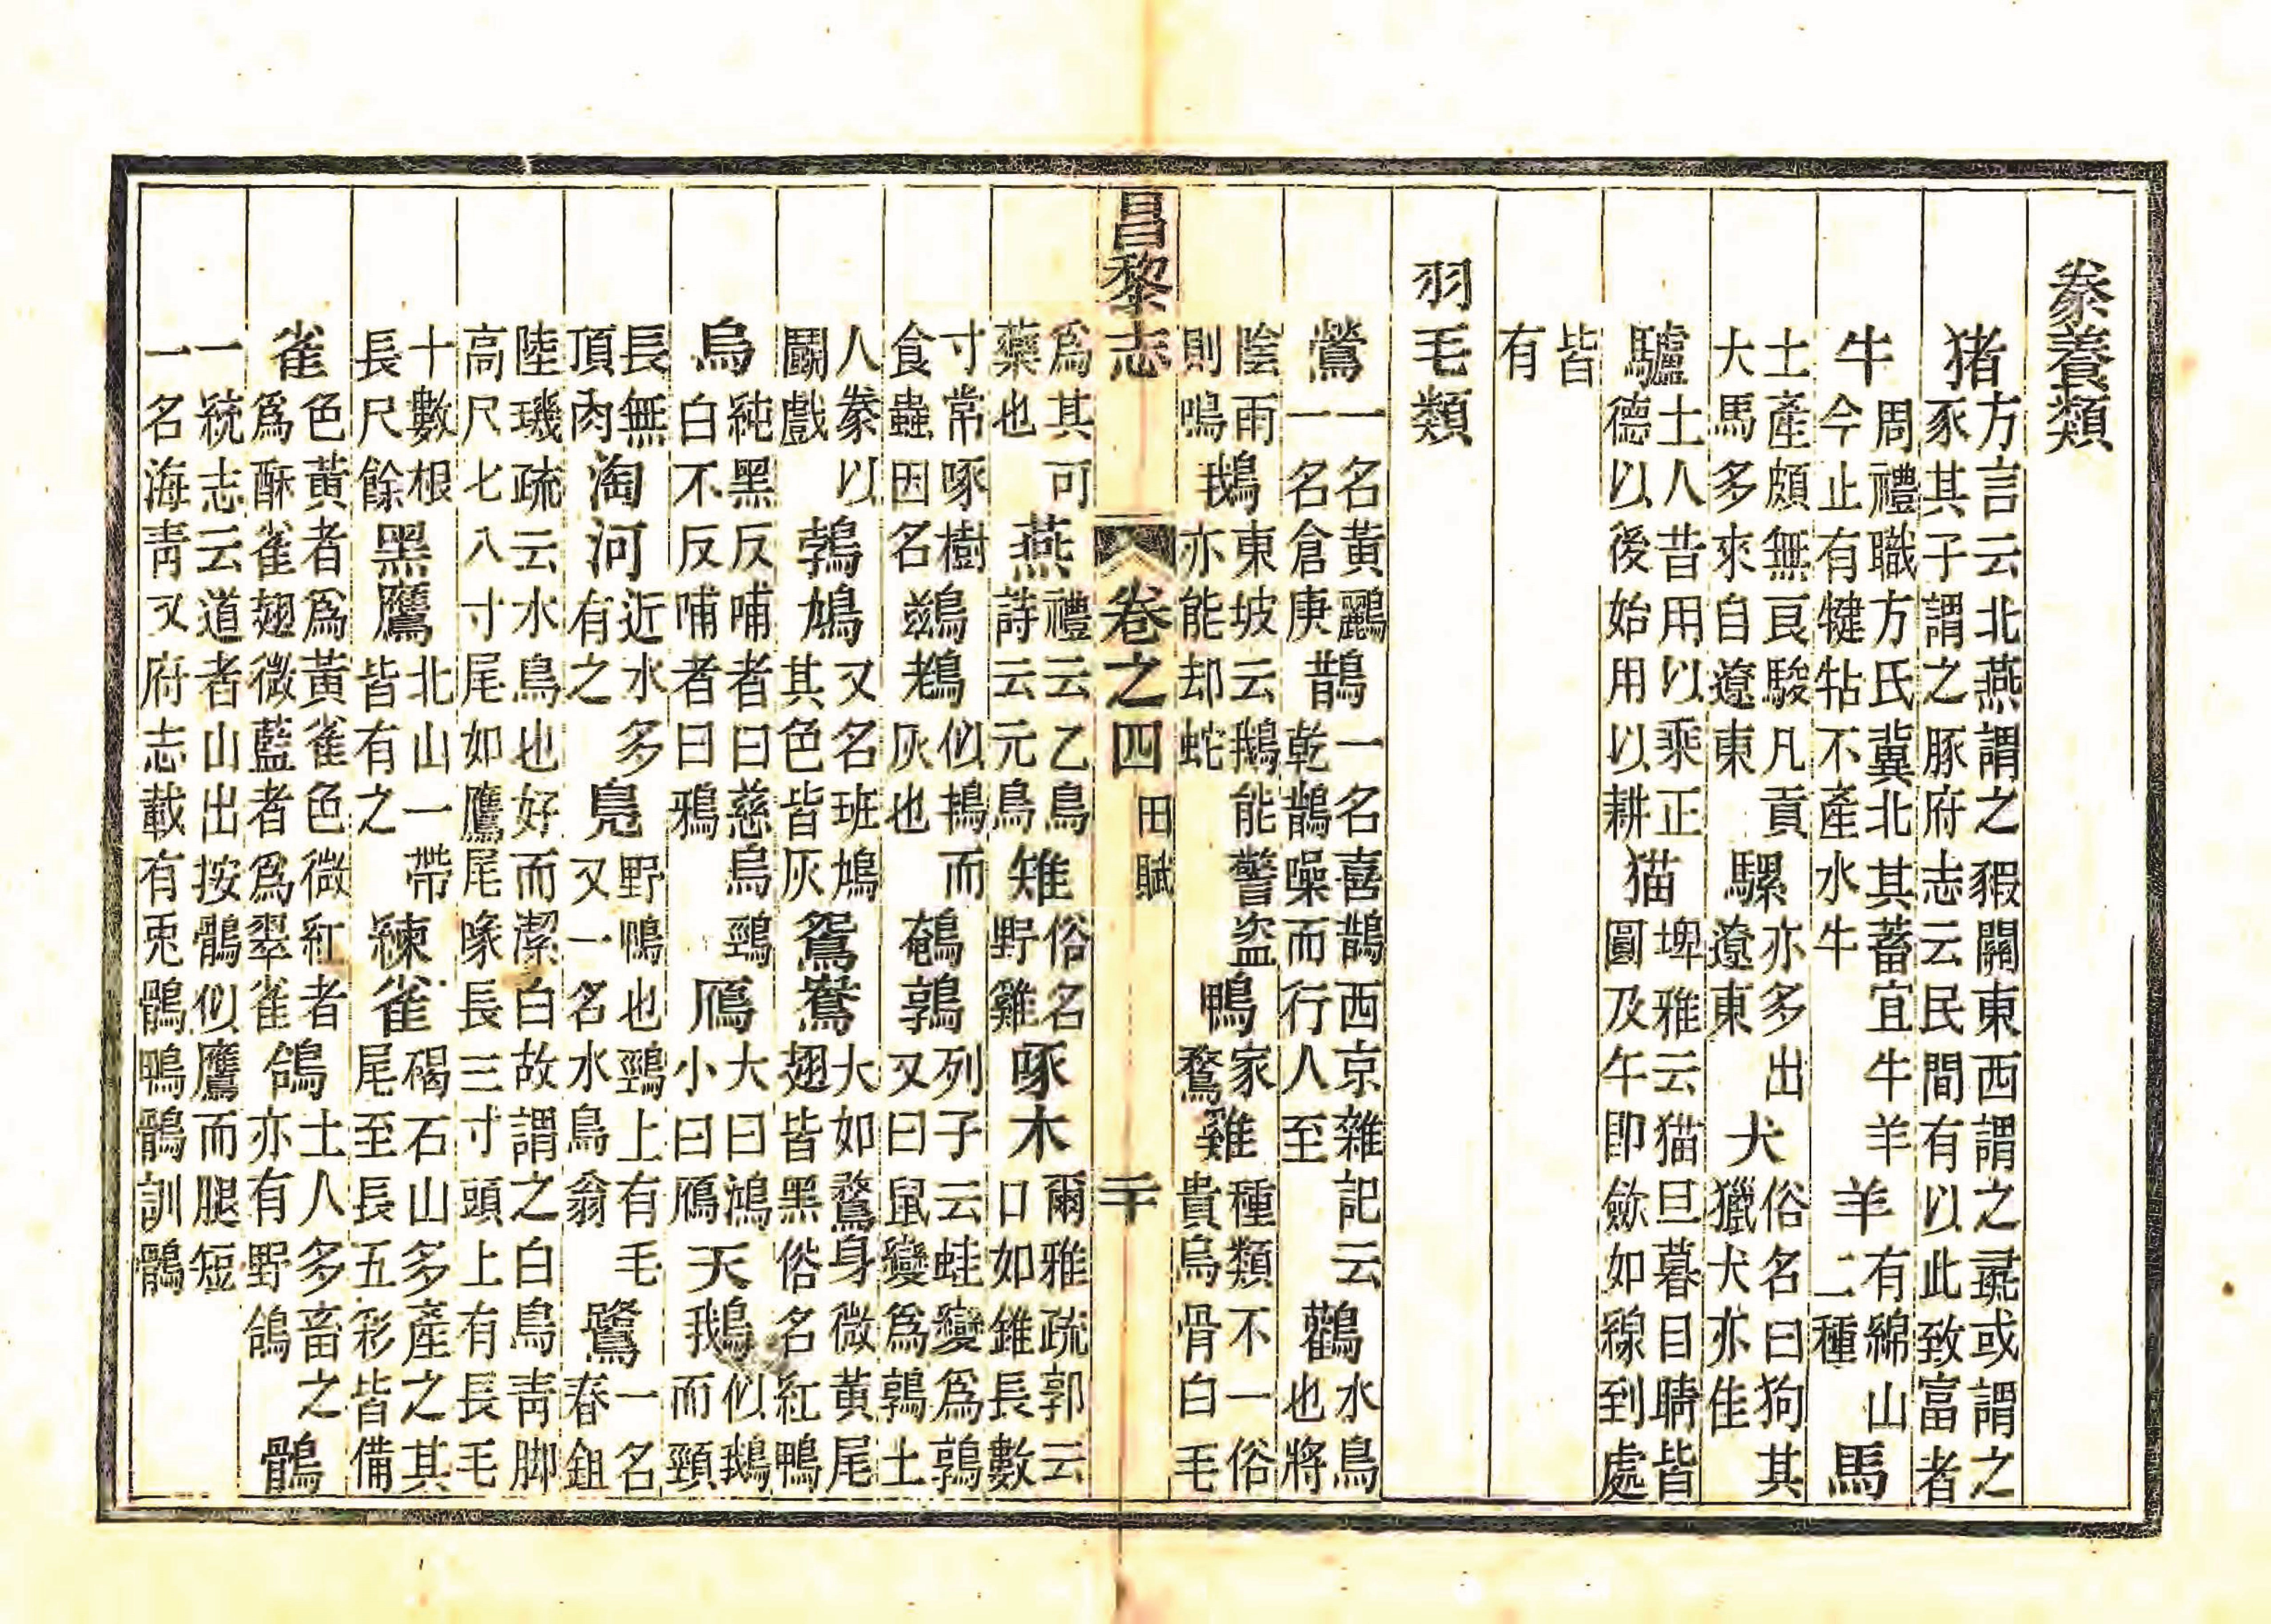 豢養類
猪方言云北燕謂之豭關東西謂之彘或謂之豕其子謂之豚府志云民間有以此致富者
牛周禮職方氏冀北其蓄宜牛羊今止有犍牯不產水牛羊有綿山二種馬
土產頗無良駿凡貢大馬多來自遼東騾亦多出遼東犬俗名曰狗其獵犬亦佳
驢土人昔用以乘正德以後始用以耕猫埤雅云猫旦暮目睛皆圓及午即歛如線到處
皆有
羽毛類
鶯一名黃鸝一名倉庚鵲一名喜鵲西京雜記云乾鵲噪而行人至鸛水鳥也將
陰雨則鳴鵝東坡云鵝能警盜亦能却蛇鴨家鶩雞種類不一俗貴烏骨白毛
昌黎志 卷之四 田賦 二十
爲其可藥也燕禮云乙鳥詩云元鳥雉俗名野雞啄木爾雅疏郭云口如錐長數
寸常啄樹食蟲因名鷀䳓似而灰也鵪鶉列子云蛙變爲鶉又曰鼠變爲鶉土
人豢以鬭戲鶉鳩又名班鳩其色皆灰鴛鴦大如鶩身微黃尾翅皆黑俗名紅鴨
烏純黑反哺者曰慈烏頸白不反哺者曰鴉鴈大曰鴻小曰鴈天鵝似鵝而頸
長無頂肉淘河近水多有之鳧野鴨也頸上有毛又一名水鳥翁鷺一名春鉏
陸璣疏云水鳥也好而潔白故謂之白鳥靑脚高尺七八寸尾如鷹尾喙長三寸頭上有長毛
十數根長尺餘黑鷹北山一帶皆有之練雀碣石山多產之其尾至長五彩皆備
雀色黃者爲黃雀色微紅者爲酥雀翅微藍者爲翠雀鴿土人多畜之亦有野鴿鶻
一統志云道者山出按鶻似鷹而腿短一名海靑又府志載有兎鶻鴨鶻訓鶻